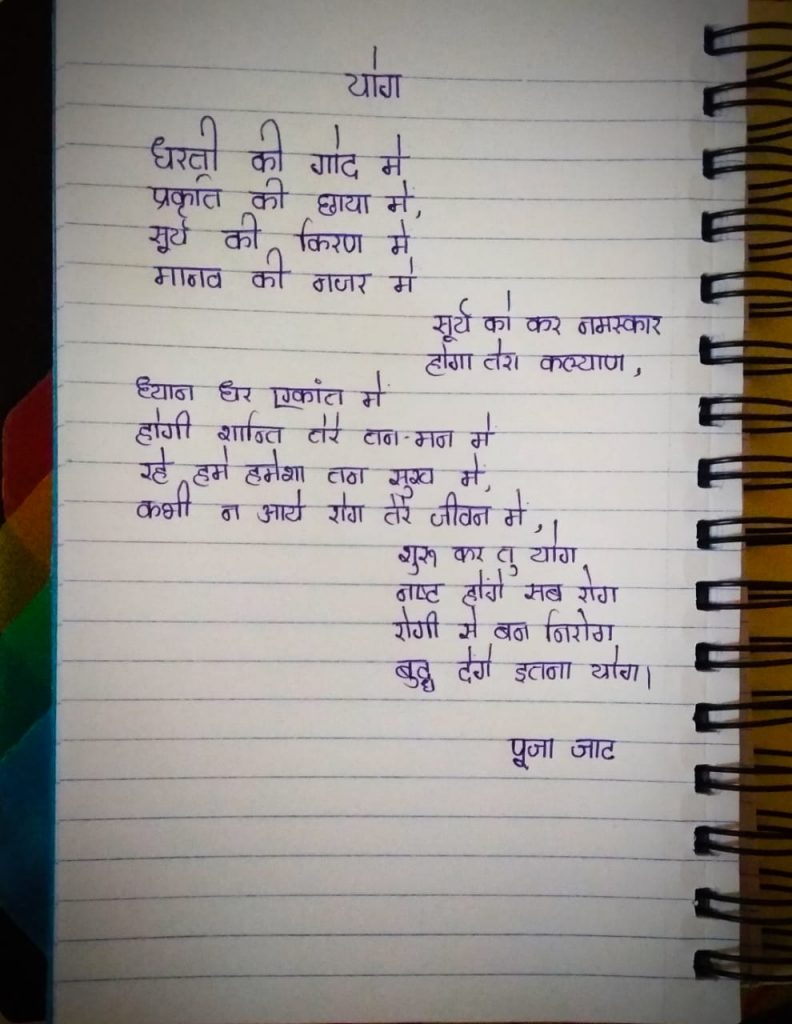 योग
धरती की गोद मे
प्रकृति की छाया में,
सूर्य की किरण मे
मानव की नजर मे
सूर्य को कर नमस्कार
होगा तेरा कल्याण,
ध्यान धर एकांत में
होगी शान्ति तेरे तन-मन मे
रहे हमे हमेशा तन सुख मे,
कभी न आये रोग तेरे जीवन में,
शुरू कर तु योग
नष्ट होंगे सब रोग
रोगी से बन निरोग
बुद्ध देंगे इतना योग।
पूजा जाट